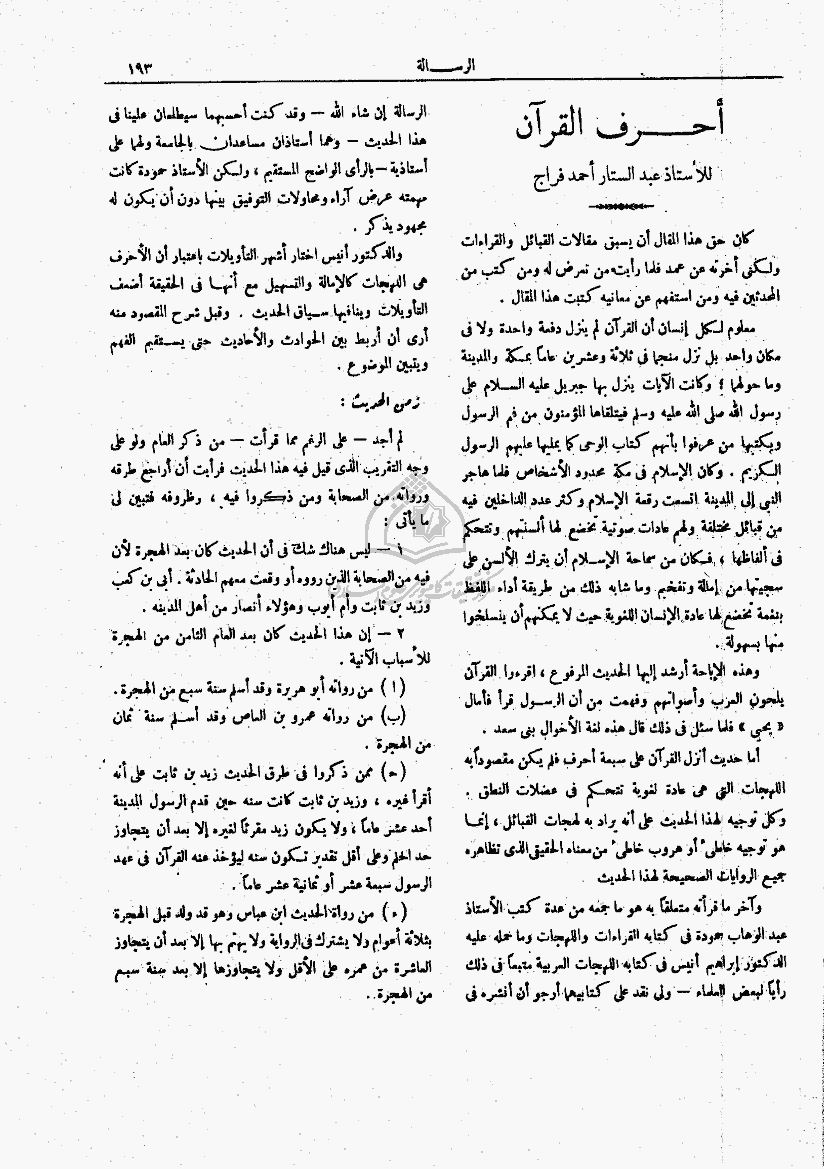 الرسالة
١٩٣
أحرف القرآن
للأستاذ عبد الستار أحمد فراج
كان حق هذا المقال أن يسبق مقالات القبائل والقراءات
ولكنى أخرته عن عمد فلما رأيت من تعرض له ومن كتب من
المحدثين فيه ومن استفهم عن معانيه كتبت هذا المقال .
معلوم لكل إنسان أن القرآن لم ينزل دفعة واحدة ولا فى
مكان واحد بل نزل منجما فى ثلاثة وعشرين عاماً بمكة والمدينة
وما حولهما ؛ وكانت الآيات ينزل بها جبريل عليه السلام على
رسول الله صلى الله عليه وسلم فيتلقاها المؤمنون من فم الرسول
ويكتبها من عرفوا بأنهم كتاب الوحى كما يمليها عليهم الرسول
الكريم . وكان الإسلام فى مكة محدود الأشخاص فلما هاجر
النبى إلى المدينة اتسعت رقعة الإسلام وكثر عدد الداخلين فيه
من قبائل مختلفة ولهم عادات صوتية تخضع لها ألسنتهم وتتحكم
فى ألفاظها ، فكان من سماحة الإسلام أن يترك الألسن على
سجيتها من إمالة وتفخيم وما شابه ذلك من طريقة أداء اللفظ
بنغمة تخضع لها عادة الإنسان اللغوية حيث لا يمكنهم أن ينسلخوا
منها بسهولة .
وهذه الإباحة أرشد إليها الحديث المرفوع ، اقرءوا القرآن
بلحون العرب وأصواتهم وفهمت من أن الرسول قرأ فأمال
« يحيى » فلما سئل فى ذلك قال هذه لغة الأخوال بنى سعد .
أما حديث أنزل القرآن على سبعة أحرف فلم يكن مقصودا به
اللهجات التى هى عادة لغوية تتحكم فى عضلات النطق .
وكل توجيه لهذا الحديث على أنه يراد به لهجات القبائل ، إنما
هو توجيه خاطئ أو هروب خاطئ من معناه الحقيقى الذى تظاهره
جميع الروايات الصحيحة لهذا الحديث
وآخر ما قرأته متعلقا به هو ما جمعه من عدة كتب الأستاذ
عبد الوهاب حمودة فى كتابه القراءات واللهجات وما حمله عليه
الدكتور إبراهيم أنيس فى كتابه اللهجات العربية متبعاً فى ذلك
رأياً لبعض العلماء — ولى نقد على كتابيهما أرجو أن أنشره فى
الرسالة إن شاء الله — وقد كنت أحسبهما سيطلعان علينا فى
هذا الحديث — وهما أستاذان مساعدان بالجامعة ولهما على
أستاذية — بالرأى الواضح المستقيم ، ولكن الأستاذ حمودة كانت
مهمته عرض آراء ومحاولات التوفيق بينها دون أن يكون له
مجهود يذكر .
والدكتور أنيس اختار أشهر التأويلات باعتبار أن الأحرف
هى اللهجات كالإمالة والتسهيل مع أنها فى الحقيقة أضعف
التأويلات وينافيها سياق الحديث . وقبل شرح المقصود منه
أرى أن أربط بين الحوادث والأحاديث حتى يستقيم الفهم
ويتبين الموضوع .
زمن الحديث :
لم أجد — على الرغم مما قرأت — من ذكر العام ولو على
وجه التقريب الذى قيل فيه هذا الحديث فرأيت أن أراجع طرقه
ورواته من الصحابة ومن ذكروا فيه ، وظروفه فتبين لى
ما يأتى :
١ — ليس هناك شك فى أن الحديث كان بعد الهجرة لأن
فيه من الصحابة الذين رووه أو وقعت معهم الحادثة . أبى بن كعب
وزيد بن ثابت وأم أيوب وهؤلاء أنصار من أهل المدينة .
٢ — إن هذا الحديث كان بعد العام الثامن من الهجرة
للأسباب الآتية .
(ا) من رواته أبو هريرة وقد أسلم سنة سبع من الهجرة .
(ب) من رواته عمرو بن العاص وقد أسلم سنة ثمان
من الهجرة .
(ح) ممن ذكروا فى طرق الحديث زيد بن ثابت على أنه
أقرأ غيره ، وزيد بن ثابت كانت سنه حين قدم الرسول المدينة
أحد عشر عاماً ، ولا يكون زيد مقرئاً لغيره إلا بعد أن يتجاوز
حد الحلم وعلى أقل تقدير تكون سنه ليؤخذ عنه القرآن فى عهد
الرسول سبعة عشر أو ثمانية عشر عاماً .
(ء) من رواة الحديث ابن عباس وهو قد ولد قبل الهجرة
بثلاثة أعوام ولا يشترك فى الرواية ولا يهتم بها إلا بعد أن يتجاوز
العاشرة من عمره على الأقل ولا يتجاوزها إلا بعد سنة سبع
من الهجرة .